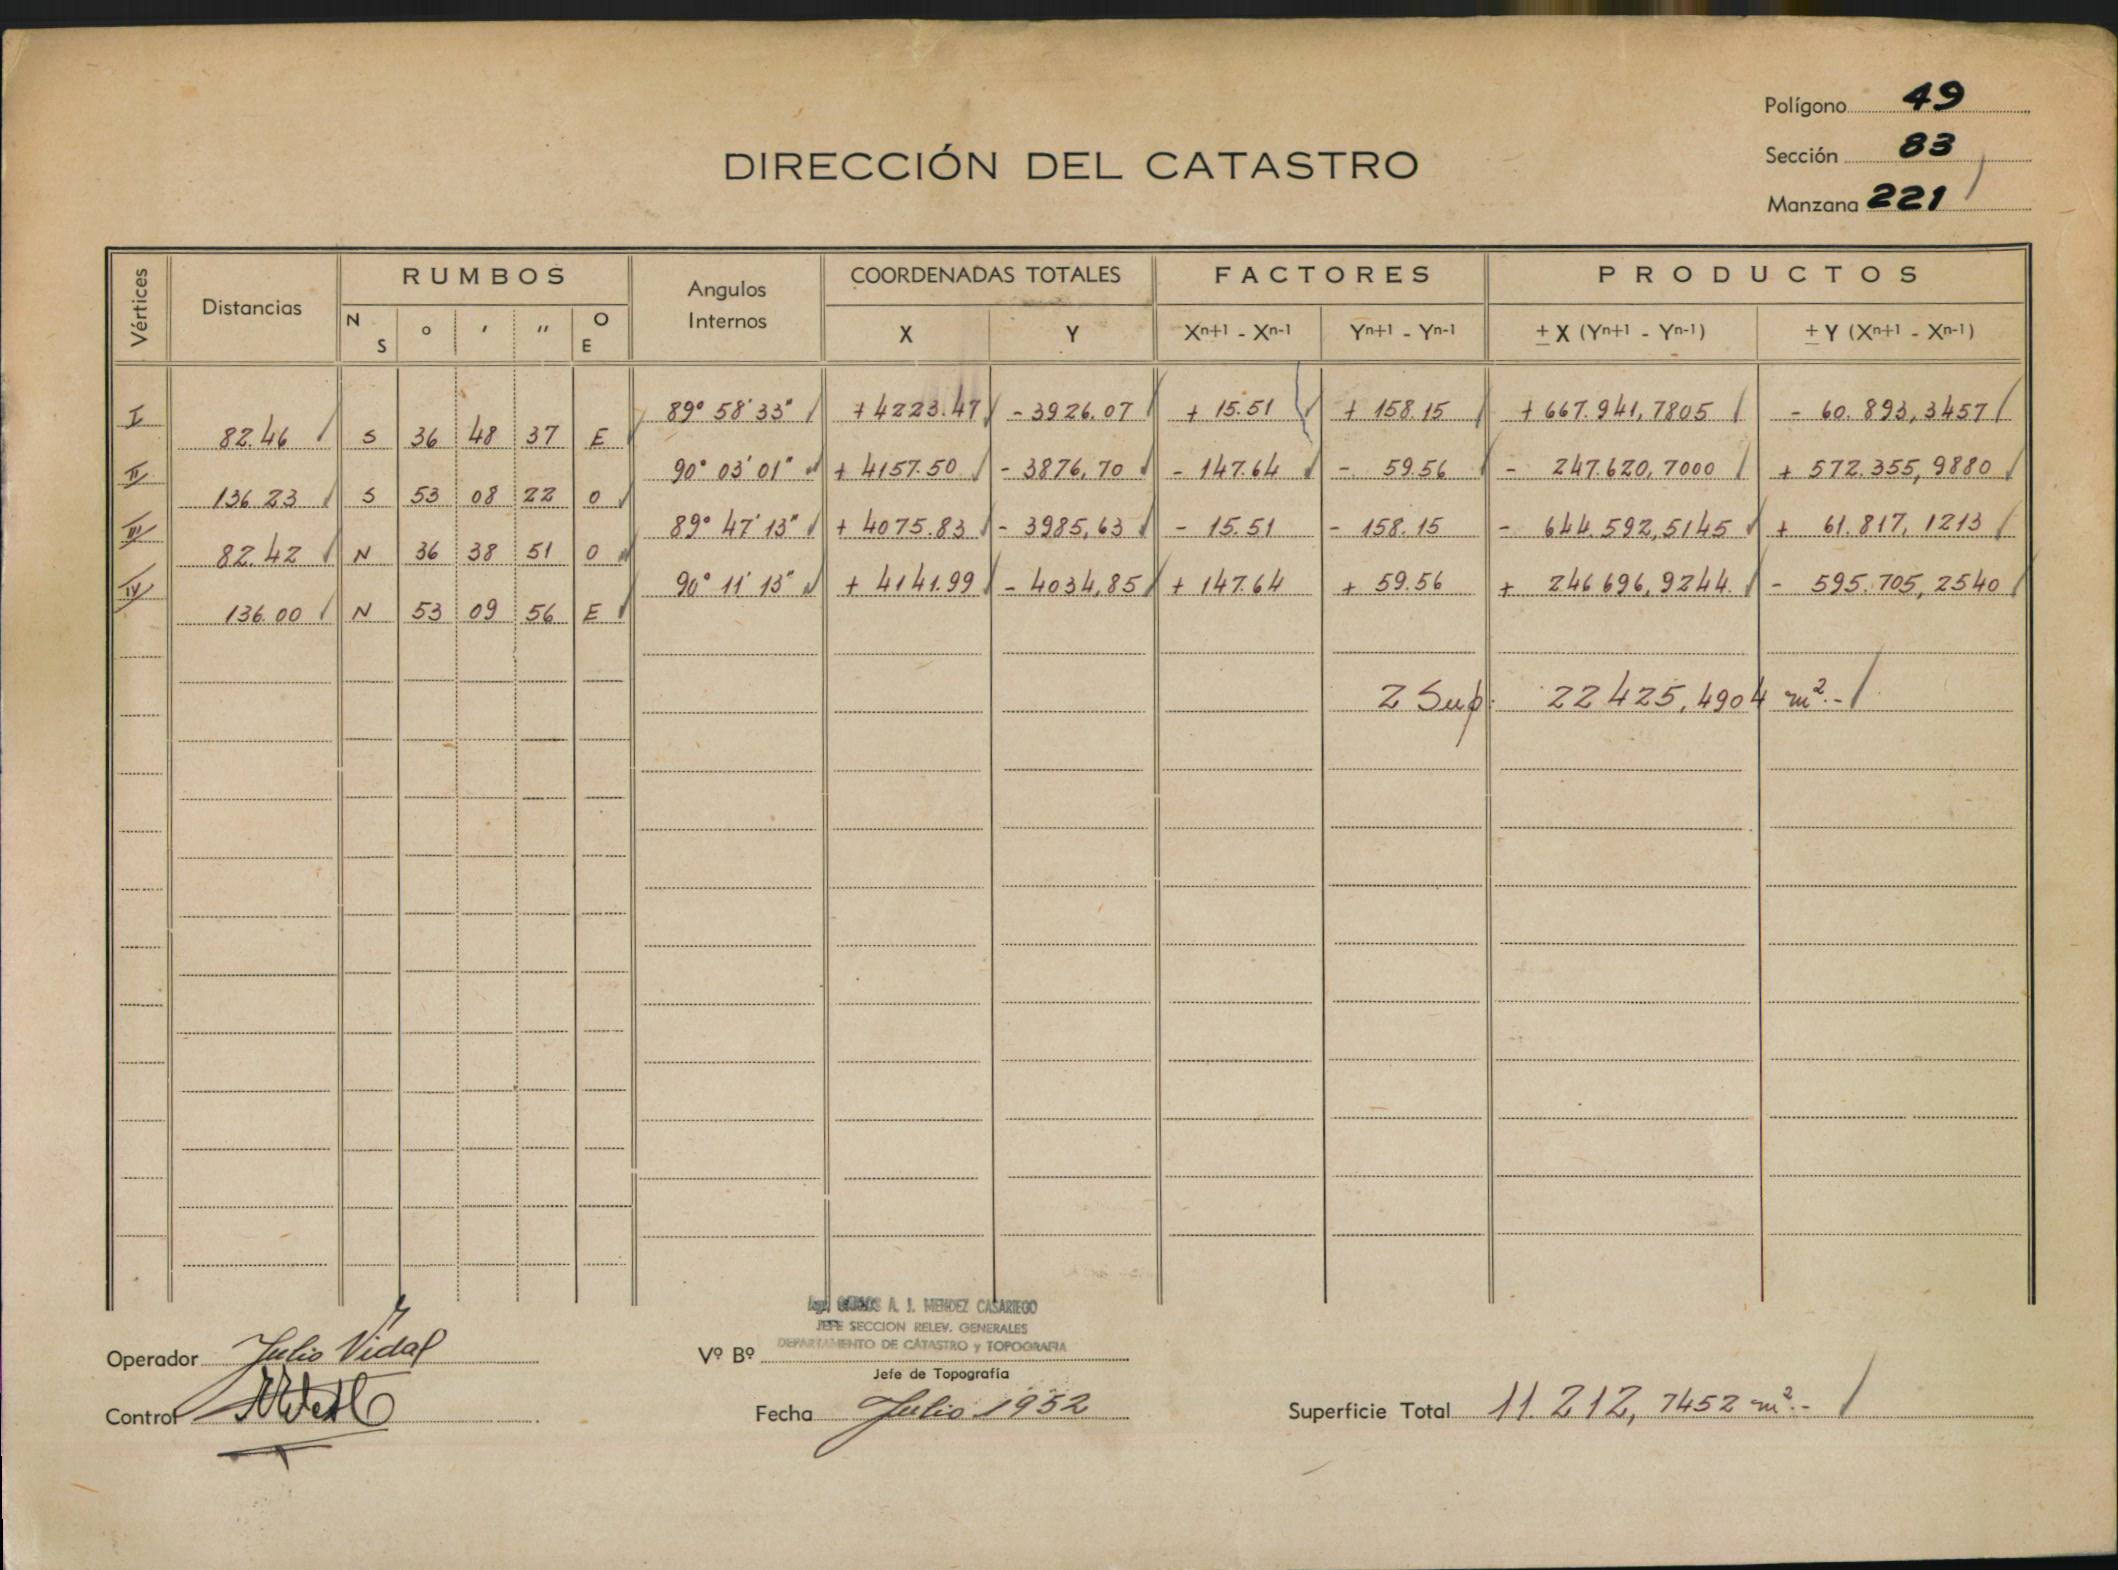 Polígono 49
Sección 83
Manzana 221
DIRECCIÓN DEL CATASTRO
Vértices Distancias RUMBOS Angulos Internos COORDENADAS TOTALES FACTORES PRODUCTOS
N S ° ′ ″ O E X Y Xn+1 - Xn-1 Yn+1 - Yn-1 ± X (Yn+1 - Yn-1) ± Y (Xn+1 - Xn-1)
I 89° 58' 33" + 4223.47 - 3926.07 + 15.51 + 158.15 + 667.941,7805 - 60.893,3457
82.46 S 36 48 37 E
II 90° 03' 01" + 4157.50 - 3876,70 - 147.64 - 59.56 - 247.620,7000 + 572.355,9880
136.23 S 53 08 22 O
III 89° 47' 13" + 4075.83 - 3985,63 - 15.51 - 158.15 - 644.592,5145 + 61.817,1213
82.42 N 36 38 51 O
IV 90° 11' 13" + 4141.99 - 4034,85 + 147.64 + 59.56 + 246696,9244 - 595.705,2540
136.00 N 53 09 56 E
2 Sup: 22425,4904 m².-
A. J. MENDEZ CASARIEGO
JEFE SECCION RELEV. GENERALES
DEPARTAMENTO DE CATASTRO y TOPOGRAFIA
Operador Julio Vidal
Vº Bº
Jefe de Topografía
Control
Fecha Julio 1952
Superficie Total 11.212,7452 m².-